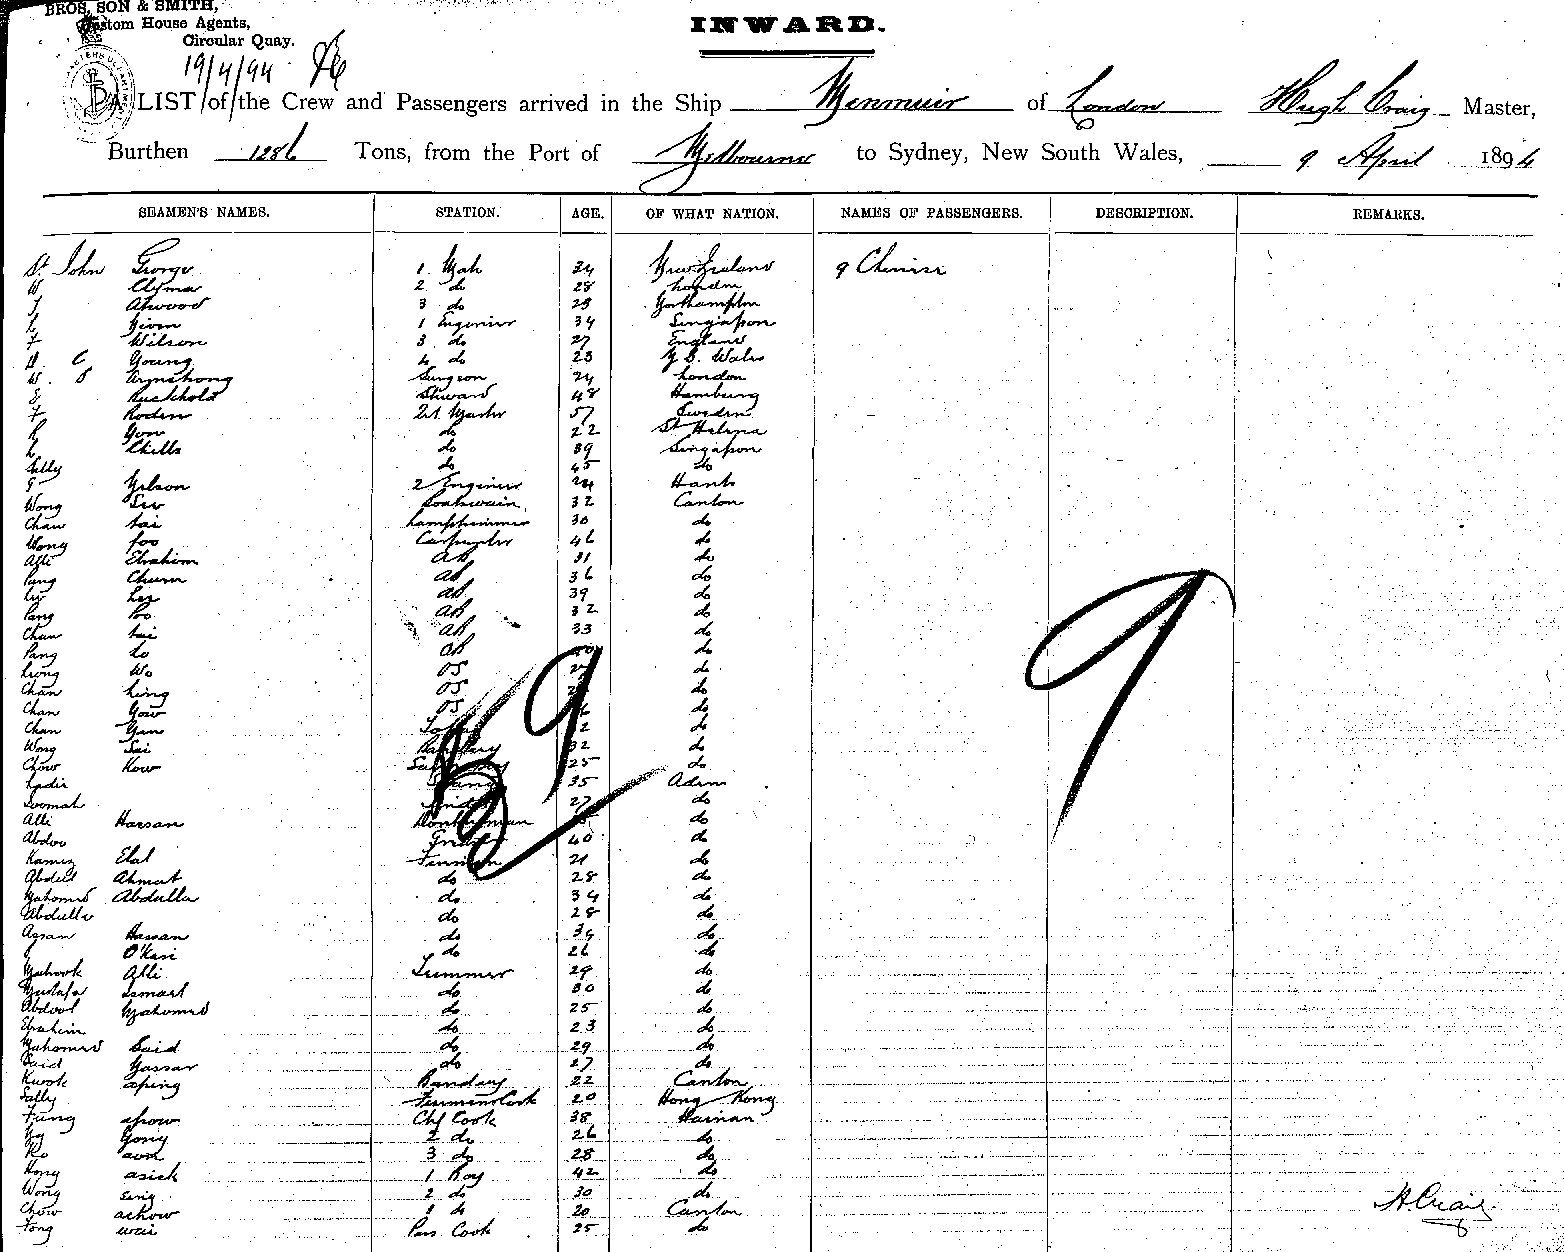 BROS, SON & SMITH,
Custom House Agents,
Circular Quay.
19/4/94
INWARD.
A LIST of the Crew and Passengers arrived in the Ship Menmuir of London Hugh Craig Master,
Burthen 1286 Tons, from the Port of Melbourne to Sydney, New South Wales, 9 April 1894
SEAMEN'S NAMES. STATION. AGE. OF WHAT NATION. NAMES OF PASSENGERS. DESCRIPTION. REMARKS.
St John George 1 Mate 34 New Zealand 9 Chinese
W Clyma 2 do 28 London
J Atwood 3 do 29 Northampton
Given 1 Engineer 34 Singapore
F Wilson 3 do 27 England
C Young 4 do 23 N S. Wales
W. S Armstrong Surgeon 24 London
Steward 48 Hamburg
F Roden Qr Master 57 Sweden
Gow do 22 St Helena
Chills do 39 Singapore
Sally do 45 do
G Gibson 2 Engineer Hants
Wong See Boatswain 32 Canton
Chan tai Lamptrimmer 30 do
Wong foo Carpenter 46 do
Alli Ebrahim AB 31 do
Pang Churn AB 36 do
Lee AB 39 do
Pang Po AB 32 do
Chan tai AB 33 do
Pang Lo AB do
Leong Wo OS do
Chan Ling OS do
Chan Gow OS do
Chan Yan do
Wong Sai 32 do
Chow Kow 25 do
Kadir 35 Aden
Soomah 27 do
Alli Hassan Donkeyman do
Abdoo 40 do
Ramez Elal Fireman 21 do
Abdul Ahmat do 28 do
Mahomed Abdulla do 34 do
Abdulla do 28 do
Assan Hassan do do
O'Kasi do 26 do
Mabrook Alli Trimmer 29 do
Mustafa Ismael do 30 do
Abdool Mahomed do 25 do
Ebrahim do 23 do
Mahomed Said do 29 do
Said Nassar do 27 do
Kwok aping Pandary 22 Canton
Sally Firemens Cook 20 Hong Kong
Fung apow Chf Cook 38 Hainan
Ng Gong 2 do 26 do
Ko 3 do 28 do
Hong asick 1 Boy 42 do
Wong Sing 2 do 30 do
Chow achow 3 do 20 Canton
Fong wai Pass Cook 25 do
59
9
H Craig